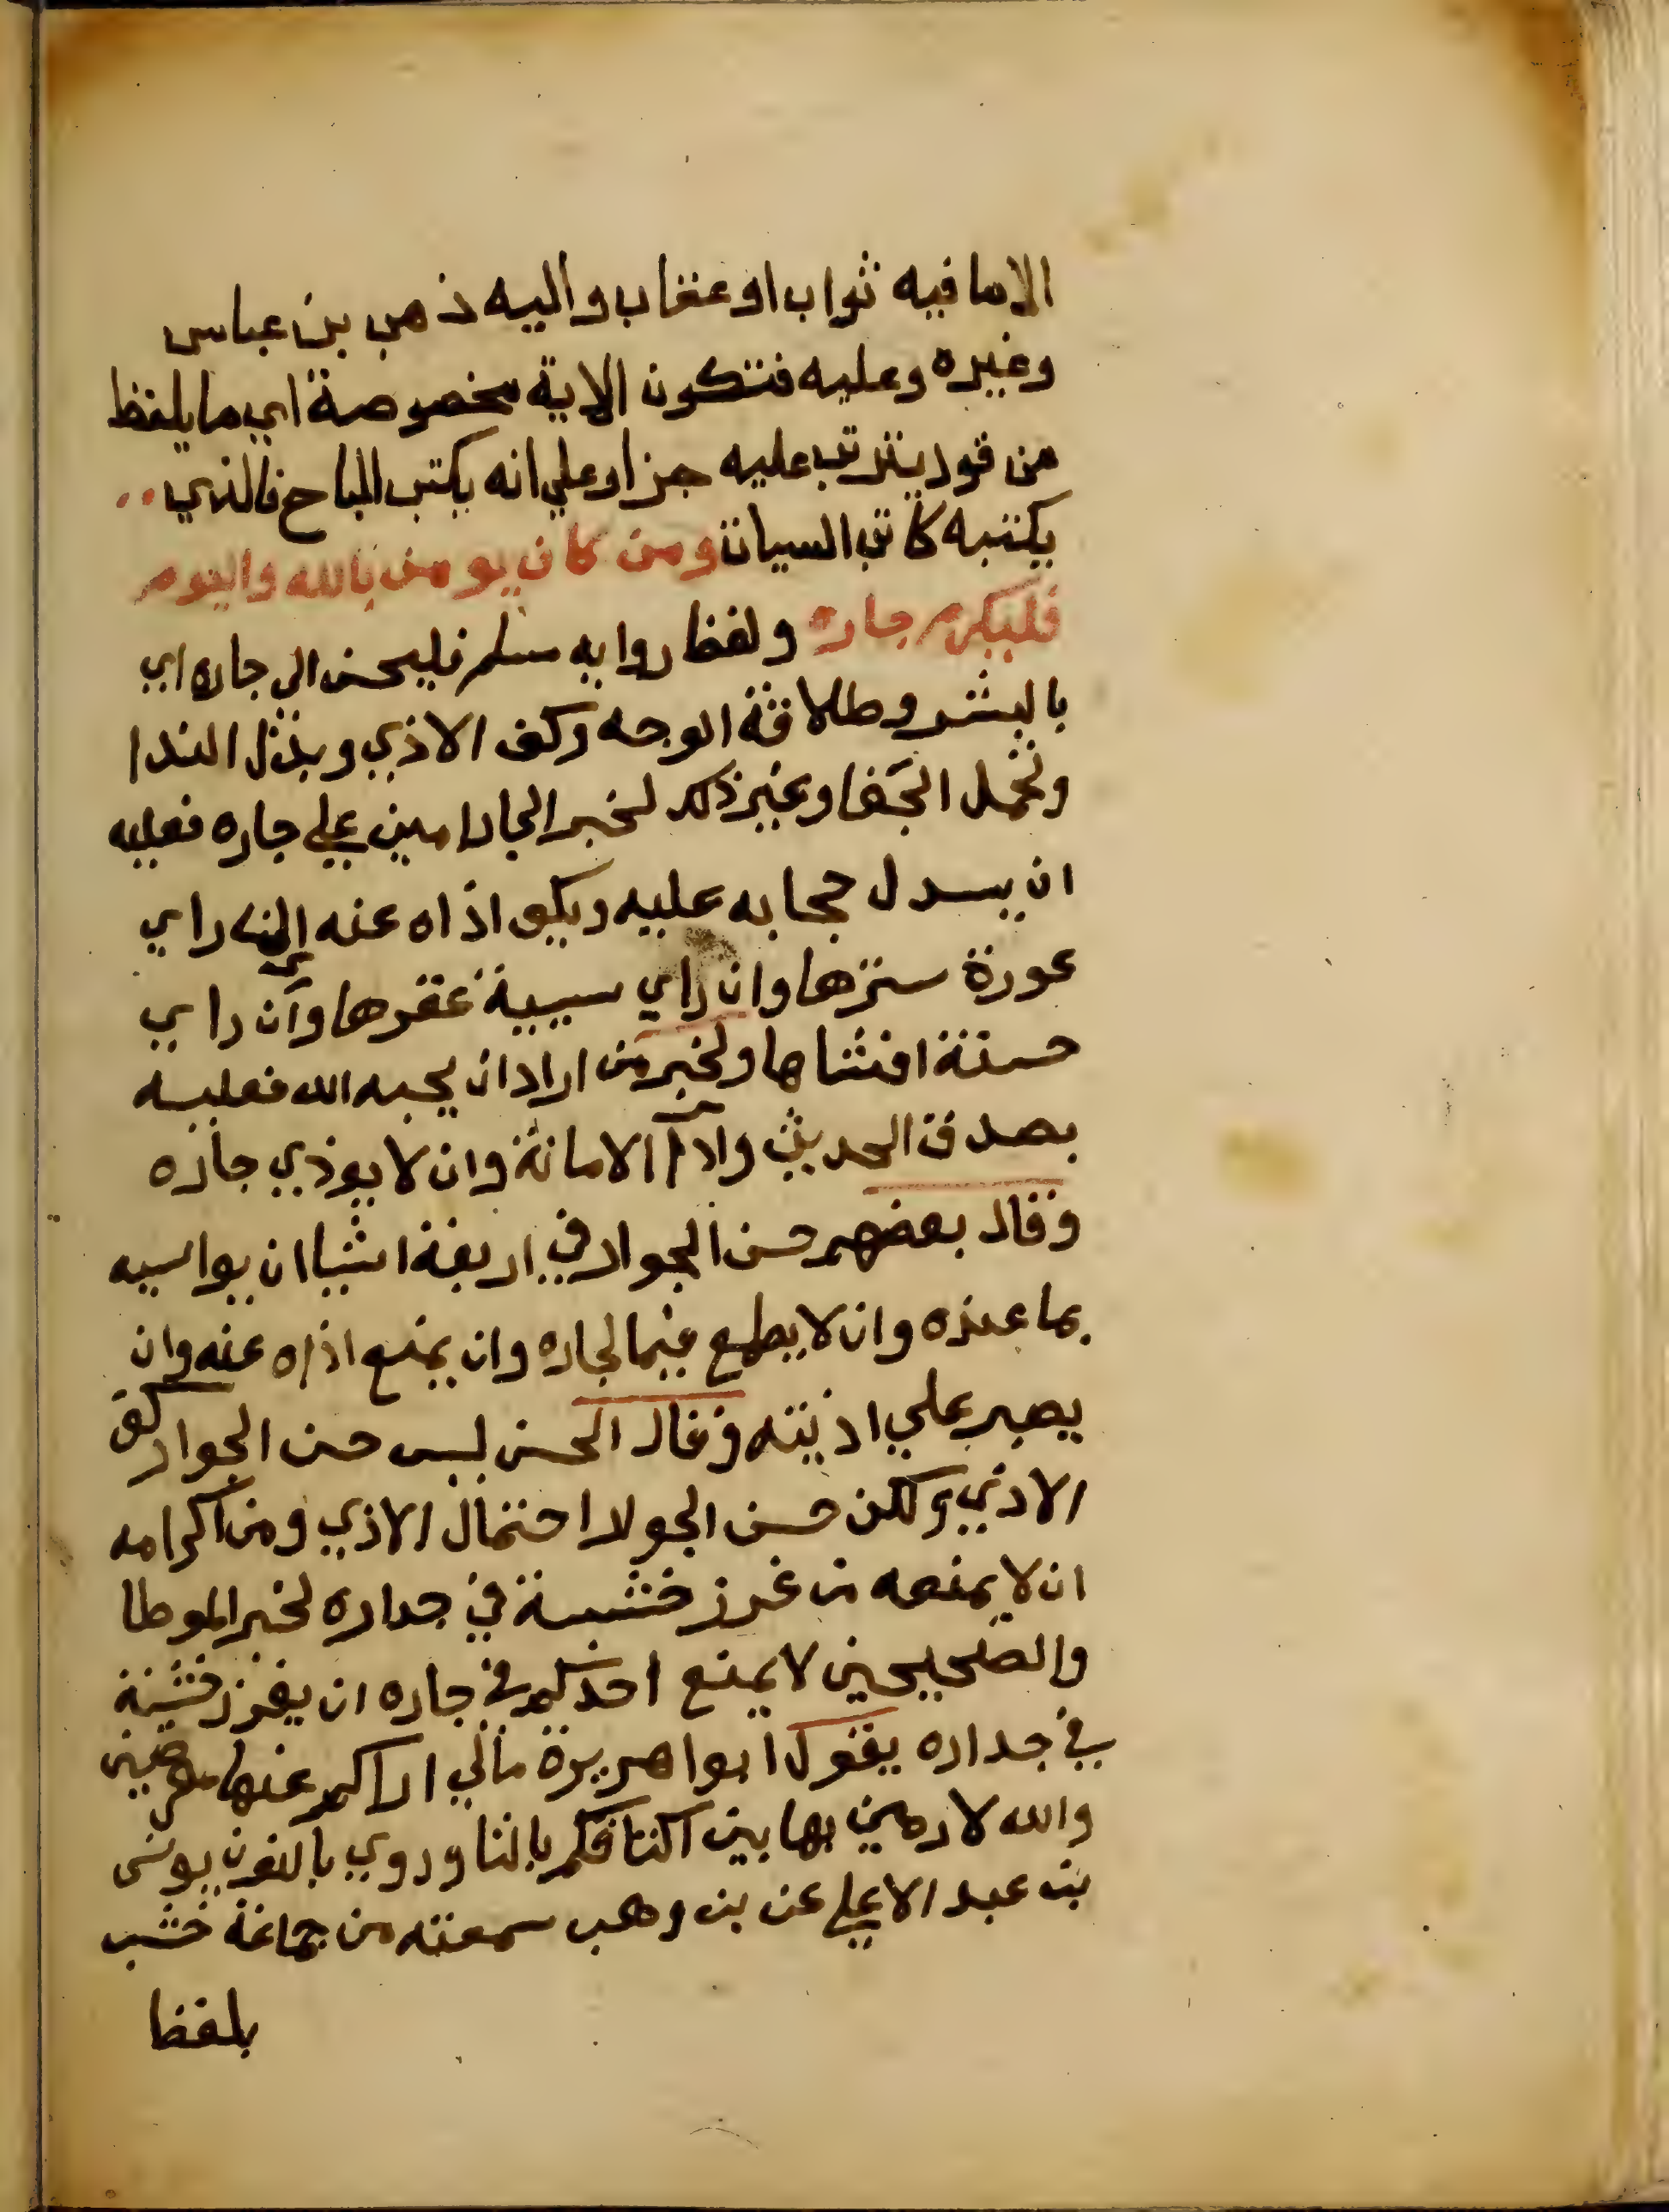 الاما فيه ثواب او عقاب واليه ذهب بن عباس
وغيره وعليه فتكون الاية مخصوصة اي ما يلفظ
من قول يترتب عليه جزاو علي انه يكتب المباح فالذي
يكتبه كاتب السيات ومن كان يومن بالله واليوم
فليكرم جاره ولفظ روايه مسلم فليحسن الي جاره اي
بالبشر وطلاقة الوجه وكف الاذي وبذل الندا
وتحمل الجفا وغير ذلك لخبر الجار امين علي جاره فعليه
ان يسدل حجابه عليه ويكف اذاه عنه راي
عورة سترها وان راي سيية غفرها وان راي
حسنة افشاها ولخبر من اراد ان يحبه الله فعليه
بصدق الحديث وادا الامانة وان لا يوذي جاره
وقال بعضهم حسن الجوار في اربعة اشيا ان يواسيه
بما عنده وان لا يطمع فيما لجاره وان يمنع اذاه عنه وان
يصبر علي اذيته وقال الحسن ليس حسن الجوار كف
الاذي ولكن حسن الجوار احتمال الاذي ومن اكرامه
ان لا يمنعه من غرز خشبة في جداره لخبر الموطا
والصحيحين لا يمنع احدكم في جاره ان يغرز خشبة
في جداره يقول ابوا هريرة مالي اراكم عنها معرضين
والله لارمين بها بين اكتافكم بالتا وروي بالنون يونس
بن عبد الاعلي عن بن وهب سمعته من جماعة خشب
بلفظ